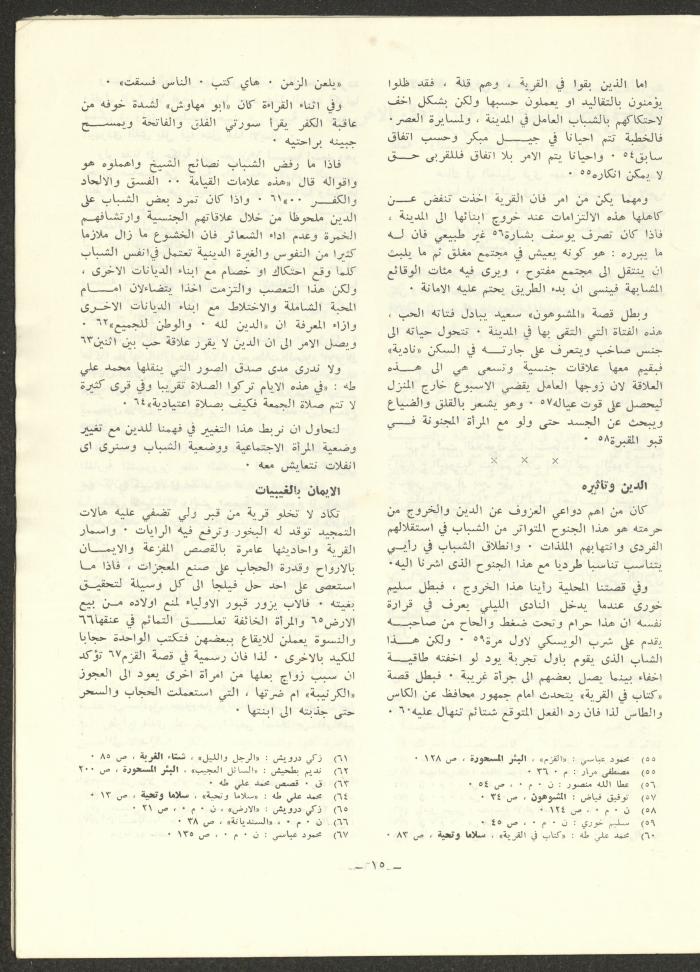 اما الذين بقوا في القرية ، وهم قلة ، فقد ظلوا
يؤمنون بالتقاليد او يعملون حسبها ولكن بشكل اخف
لاحتكاكهم بالشباب العامل في المدينة ، ولمسايرة العصر٠
فالخطبة تتم احيانا في جيــــل مبكر وحسب اتفاق
سابق٥٤ ٠ واحيانا يتم الامر بلا اتفاق فللقربى حــق
لا يمكن انكاره٥٥ ٠
ومهما يكن من امر فان القرية اخذت تنفض عـــن
كاهلها هذه الالتزامات عند خروج ابنائها الى المدينة ،
فاذا كان تصرف يوسف بشارة٥٦ غير طبيعي فان لــه
ما يبرره : هو كونه يعيش في مجتمع مغلق ثم ما يلبث
ان ينتقل الى مجتمع مفتوح ، ويرى فيه مئات الوقائع
المشابهة فينسى ان بدء الطريق يحتم عليه الامانة ٠
وبطل قصة «المشوهون» سعيد يبادل فتاته الحب ،
هذه الفتاة التي التقى بها في المدينة ٠ تتحول حياته الى
جنس صاخب ويتعرف على جارتــــه في السكن «نادية»
فيقيم معها علاقات جنسية وتسعى هي الى هــــذه
العلاقة لان زوجها العامل يقضي الاسبوع خارج المنزل
ليحصل على قوت عياله٥٧ ٠ وهو يشعر بالقلق والضياع
ويبحث عن الجسد حتى ولو مع المرأة المجنونة فـــي
قبو المقبرة٥٨ ٠
× × ×
الدين وتاثيره
كان من اهم دواعي العزوف عن الدين والخروج من
حرمته هو هذا الجنوح المتواتر من الشباب في استقلالهم
الفردى وانتهابهم الملذات ٠ وانطلاق الشباب في رأيــي
يتناسب تناسبا طرديا مع هذا الجنوح الذى اشرنا اليه٠
وفي قصتنا المحلية رأينا هذا الخروج ، فبطل سليم
خورى عندما يدخل النادى الليلي يعرف في قرارة
نفسه ان هذا حرام وتحت ضغط والحاح من صاحبــه
يقدم على شرب الويسكي لاول مرة٥٩ ٠ ولكن هــــذا
الشاب الذى يقوم باول تجربة يود لو اخفته طاقيــة
اخفاء بينما يصل بعضهم الى جرأة غريبة ٠ فبطل قصة
«كتاب في القرية» يتحدث امام جمهور محافظ عن الكاس
والطاس لذا فان رد الفعل المتوقع شتائم تنهال عليه٦٠ ٠
(٥٥ محمود عباسي : «القزم» ، البئر المسحورة ، ص ١٢٨ ٠
(٥٥ مصطفى مرار : م ٠ ٣٦ ٠
(٥٦ عطا الله منصور : ن ٠ م ٠ ، ص ٥٤ ٠
(٥٧ توفيق فياض : المشوهون ، ص ٣٤ ٠
(٥٨ ن ٠ م ٠ ، ص ١٢٤ ٠
(٥٩ سليم خوري : ن ٠ م ٠ ، ص ٤٥ ٠
(٦٠ محمد علي طه : «كتاب في القرية» ، سلاما وتحية ، ص ٨٣ ٠
«يلعن الزمن ٠ هاي كتب ٠ الناس فسقت» ٠
وفي اثناء القراءة كان «ابو مهاوش» لشدة خوفه من
عاقبة الكفر يقرأ سورتي الفلق والفاتحة ويمســـح
جبينه براحتيه ٠
فاذا ما رفض الشباب نصائح الشيخ واهملوه هو
واقواله قال «هذه علامات القيامة ٠٠ الفسق والالحاد
والكفـــر ٠٠»٦١ ٠ واذا كان تمرد بعض الشباب على
الدين ملحوظا من خلال علاقاتهم الجنسية وارتشافهــم
الخمرة وعدم اداء الشعائر فان الخشوع ما زال ملازما
كثيرا من النفوس والغيرة الدينية تعتمل في انفس الشباب
كلما وقع احتكاك او خصام مع ابناء الديانات الاخرى ،
ولكن هذا التعصب والتزمت اخذا يتضاءلان امــــام
المحبة الشاملة والاختلاط مع ابناء الديانات الاخــرى
وازاء المعرفة ان «الدين لله ٠ والوطن للجميع»٦٢ ٠
ويصل الامر الى ان الدين لا يقرر علاقة حب بين اثنين٦٣
ولا ندرى مدى صدق الصور التي ينقلها محمد علي
طه : «في هذه الايام تركوا الصلاة تقريبا وفي قرى كثيرة
لا تتم صلاة الجمعة فكيف بصلاة اعتيادية»٦٤ ٠
لنحاول ان نربط هذا التغيير في فهمنا للدين مع تغيير
وضعية المرأة الاجتماعية ووضعية الشباب وسنرى اى
انفلات نتعايش معه ٠
الايمان بالغيبيات
تكاد لا تخلو قرية من قبر ولي تضفي عليه هالات
التمجيد توقد له البخور وترفع فيه الرايات ٠ واسمار
القرية واحاديثها عامرة بالقصص المفزعة والايمــــان
بالارواح وقدرة الحجاب على صنع المعجزات ، فاذا مـا
استعصى على احد حل فيلجا الى كل وسيلة لتحقيــق
بغيته ٠ فالاب يزور قبور الاولياء لمنع اولاده مــن بيع
الارض٦٥ والمرأة الخائفة تعلــــق التمائم في عنقها٦٦
والنسوة يعملن للايقاع ببعضهن فتكتب الواحدة حجابا
للكيد بالاخرى ٠ لذا فان رسمية في قصة القزم٦٧ تؤكد
ان سبب زواج بعلها من امرأة اخرى يعود الى العجوز
«الكرنيبة» ام ضرتها ، التي استعملت الحجاب والسحر
حتى جذبته الى ابنتها ٠
(٦١ زكي درويش : «الرجل والليل» ، شتاء الغربة ، ص ٨٥ ٠
(٦٢ نديم بطحيش : «السائل العجيب» ، البئر المسحورة ، ص ٢٠٠
(٦٣ ق ٠ قصص محمد علي طه ٠
(٦٤ محمد علي طه : «سلاما وتحية» ، سلاما وتحية ، ص ١٣ ٠
(٦٥ زكي درويش : «الارض» ، ن ٠ م ٠ ، ص ٣١ ٠
(٦٦ ن ٠ م ٠ ، «السنديانة» ، ص ٣٨ ٠
(٦٧ محمود عباسي : ن ٠ م ٠ ، ص ١٣٥ ٠
— ١٥ —